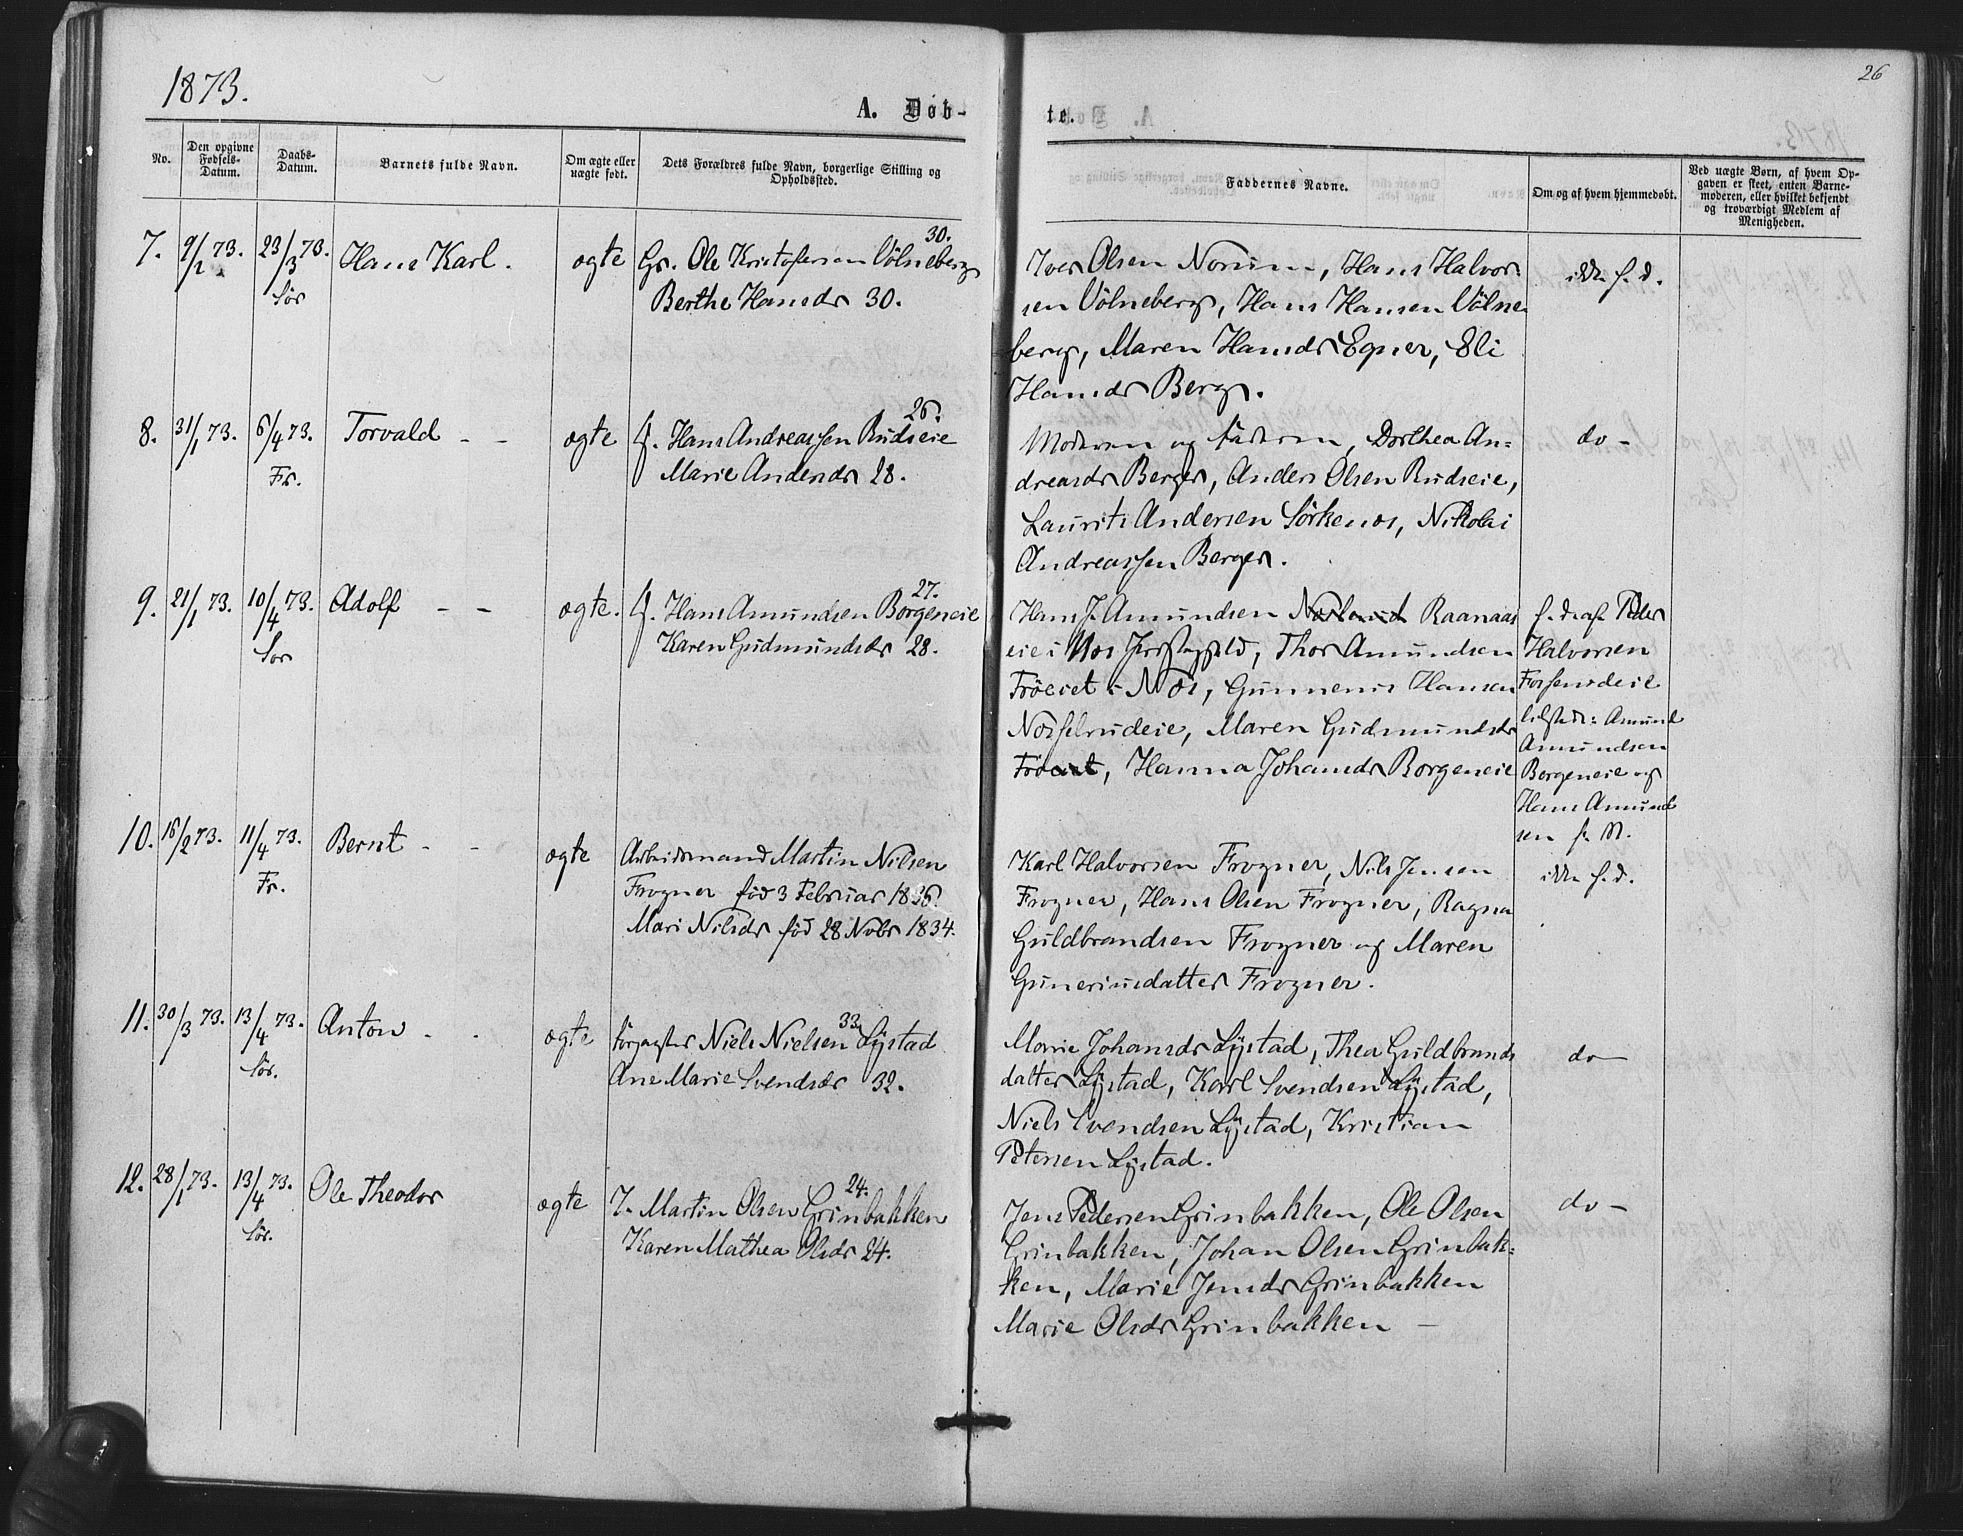 1873.
26
A. Døb-
te.
No.
Den opgivne Fødsels-Datum.
Daabs-Datum.
Barnets fulde Navn.
Om ægte eller uægte født.
Dets Forældres fulde Navn, borgerlige Stilling og Opholdssted.
Faddernes Navne.
Om og af hvem hjemmedøbt.
Ved uægte Børn, af hvem Op-
gaven er skeet, enten Barne-
moderen, eller hvilket bekjendt
og troværdigt Medlem af
Menigheden.
7. 9/2 73. 23/3 73. Hans Karl. ægte Gr. Ole Kristofersen Völneberg 30.
Sör
Berthe Hansdr 30.
Iver Olsen Norum, Hans Halvor-
sen Völneberg, Hans Hansen Völne-
berg, Maren Hansdr Egner, Eli
Hansdr Berg.
ikke f. d.
8. 31/1 73. 6/4 73. Torvald - - ægte f. Hans Andreassen Rudseie 26.
Fr.
Marie Andersdr 28.
Moderen og faderen, Dorthea An=
dreasdr Berger, Anders Olsen Rudseie,
Laurits Andersen Sörkenæs, Nikolai
Andreassen Berger.
do -
9. 21/1 73. 10/4 73. Adolf - - ægte. f. Hans Amundsen Borgeneie 27.
Sör
Karen Gudmundsdr 28.
Hans J. Amundsen Raanaas
eie i Thor Amundsen
Fröeiet i Næs, Gunnerius Hansen
Næsselrudeie, Maren Gudmundsdr
Fröeiet, Hanna Johansdr Borgeneie
f. d. af Peder
Halvorsen
tilstede: Amund
Amundsen
Borgeneie og
Hans Amund
sen f. M.
10. 16/2 73. 11/4 73. Bernt - - ægte Arbeidsmand Martin Nilsen
Fr.
Frogner fød 3 Februar 1836.
Mari Nilsdr fød 28 Nobr 1834.
Karl Halvorsen Frogner, Nils Jensen
Frogner, Hans Olsen Frogner, Ragna
Guldbrandsen Frogner og Maren
Guneriusdatter Frogner.
ikke f. d.
11. 30/3 73. 13/4 73. Anton - - ægte Forpagter Niels Nielsen Lystad 33.
Sör.
Ane Marie Svendsdr 32.
Marie Johansdr Lystad, Thea Guldbrands
datter Lystad, Karl Svendsen Lystad,
Niels Svendsen Lystad, Kristian
Petersen Lystad.
do -
12. 28/1 73. 13/4 73. Ole Theodor ægte I. Martin Olsen Grinbakken 24.
Sör.
Karen Mathea Olsdr 24.
Jens Pedersen Grinbakken, Ole Olsen
Grinbakken, Johan Olsen Grinbak=
ken, Marie Jensdr Grinbakken
Marie Olsdr Grinbakken -
do -